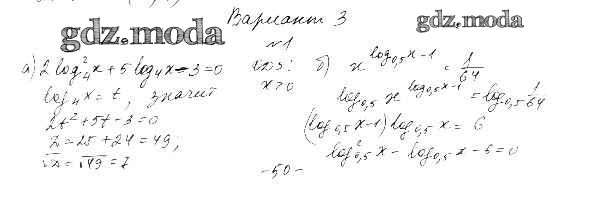 Вариант 3
gdz.moda
gdz.moda
№1
а) 2 log₄² x + 5 log₄ x - 3 = 0
log₄ x = t, значит
2t² + 5t - 3 = 0
D = 25 + 24 = 49;
√D = √49 = 7
ОДЗ:
x > 0
б) x^(log₀,₅ x - 1) = 1/64
log₀,₅ x^(log₀,₅ x - 1) = log₀,₅ 1/64
(log₀,₅ x - 1) log₀,₅ x = 6
log²₀,₅ x - log₀,₅ x - 6 = 0
- 50 -